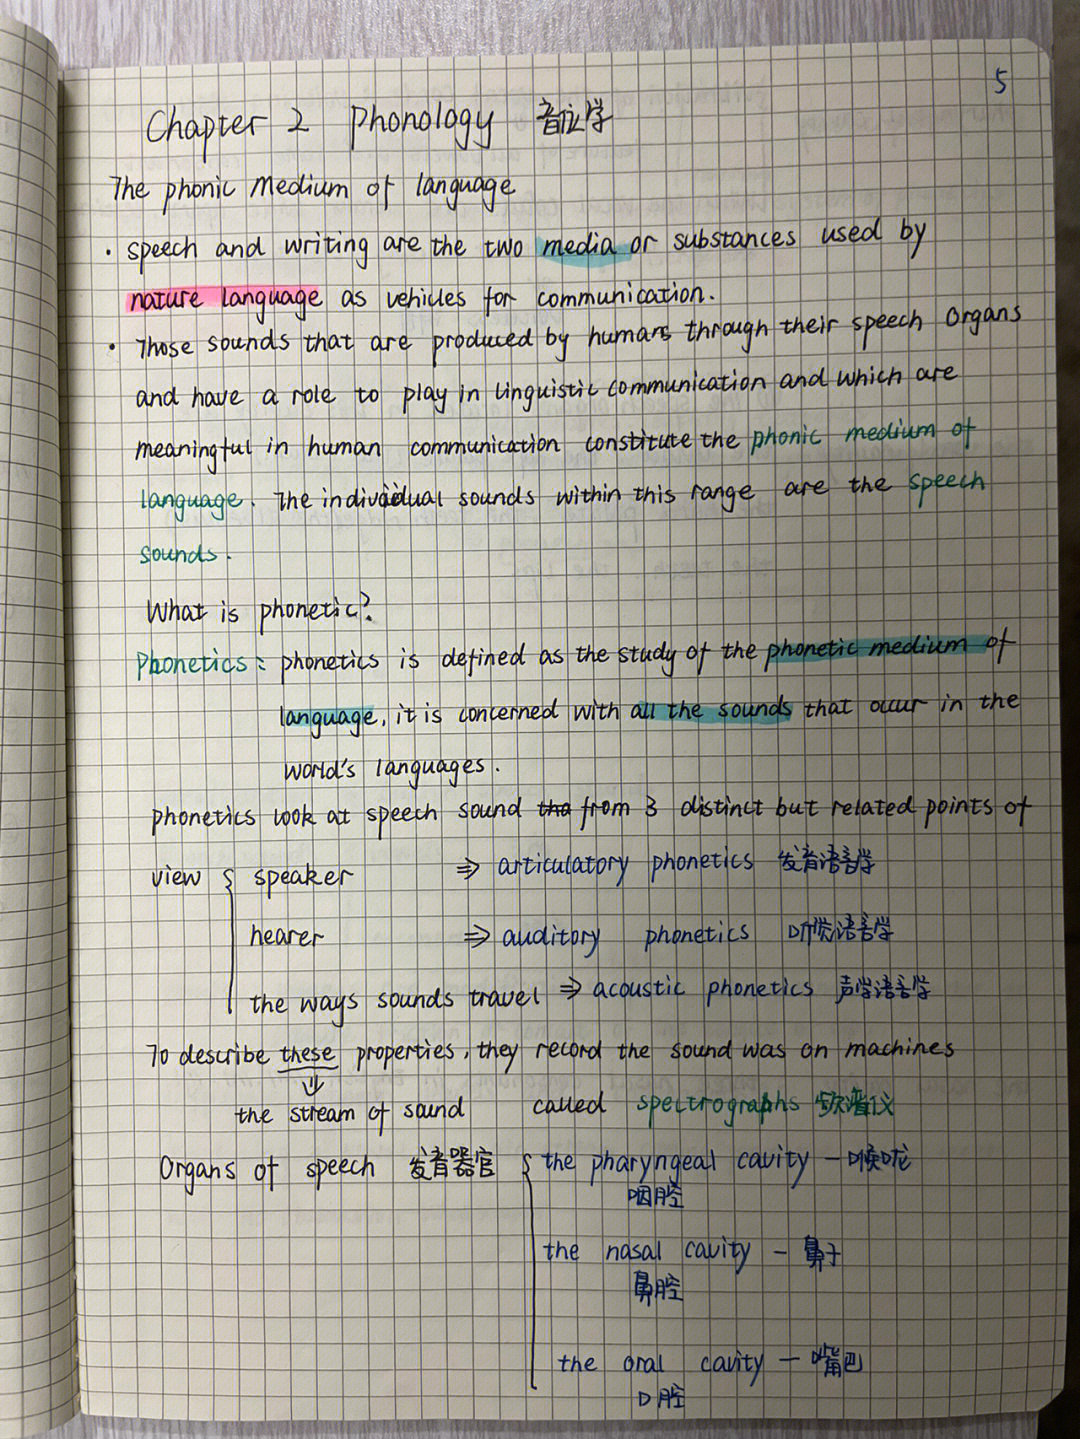 5
Chapter 2 Phonology 音位学
The phonic medium of language
· speech and writing are the two media or substances used by
nature language as vehicles for communication.
· Those sounds that are produced by humans through their speech organs
and have a role to play in linguistic communication and which are
meaningful in human communication constitute the phonic medium of
language. The individual sounds within this range are the speech
sounds.
What is phonetic?
Phonetics: phonetics is defined as the study of the phonetic medium of
language, it is concerned with all the sounds that occur in the
world's languages.
phonetics look at speech sound from 3 distinct but related points of
view { speaker ⇒ articulatory phonetics 发音语言学
hearer ⇒ auditory phonetics 听觉语言学
the ways sounds travel ⇒ acoustic phonetics 声学语言学
To describe these properties, they record the sound was on machines
⇓
the stream of sound called spectrographs 频谱仪
Organs of speech 发音器官 { the pharyngeal cavity — 喉咙
咽腔
the nasal cavity — 鼻子
鼻腔
the oral cavity — 嘴巴
口腔